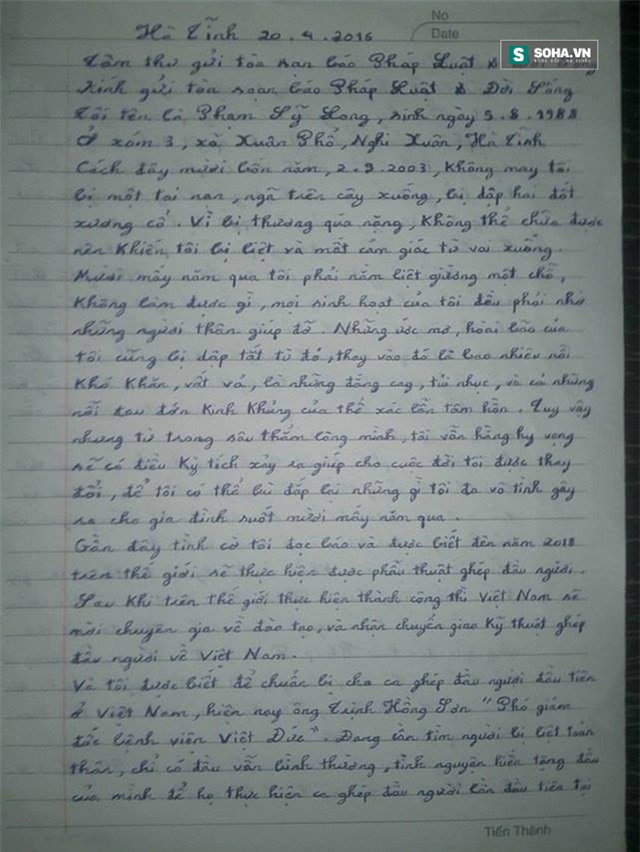 No
Date
SOHA.VN
Hà Tĩnh 20.4.2016
Tâm thư gửi tòa soạn báo Pháp Luật &
Kính gửi tòa soạn báo Pháp Luật & Đời Sống
Tôi tên là Phạm Sỹ Long, sinh ngày 5.8.1988
Ở xóm 3, xã Xuân Phổ, Nghi Xuân, Hà Tĩnh
Cách đây mười bốn năm, 2.9.2003, không may tôi
bị một tai nạn, ngã trên cây xuống, bị dập hai đốt
xương cổ. Vì bị thương quá nặng, không thể chữa được
nên khiến tôi bị liệt và mất cảm giác từ vai xuống.
Mười mấy năm qua tôi phải nằm liệt giường một chỗ,
không làm được gì, mọi sinh hoạt của tôi đều phải nhờ
những người thân giúp đỡ. Những ước mơ, hoài bão của
tôi cũng bị dập tắt từ đó, thay vào đó là bao nhiêu nỗi
khó khăn, vất vả, là những đắng cay, tủi nhục, và cả những
nỗi đau đớn kinh khủng của thể xác lẫn tâm hồn. Tuy vậy
nhưng từ trong sâu thẳm lòng mình, tôi vẫn hằng hy vọng
sẽ có điều kỳ tích xảy ra giúp cho cuộc đời tôi được thay
đổi, để tôi có thể bù đắp lại những gì tôi đã vô tình gây
ra cho gia đình suốt mười mấy năm qua.
Gần đây tình cờ tôi đọc báo và được biết đến năm 2018
trên thế giới sẽ thực hiện được phẫu thuật ghép đầu người.
Sau khi trên thế giới thực hiện thành công thì Việt Nam sẽ
mời chuyên gia về đào tạo, và nhận chuyển giao kỹ thuật ghép
đầu người về Việt Nam.
Và tôi được biết để chuẩn bị cho ca ghép đầu người đầu tiên
ở Việt Nam, hiện nay ông Trịnh Hồng Sơn "Phó giám
đốc bệnh viện Việt Đức". Đang cần tìm người bị liệt toàn
thân, chỉ có đầu vẫn bình thường, tình nguyện hiến tặng đầu
của mình để họ thực hiện ca ghép đầu người lần đầu tiên tại
Tiến Thành